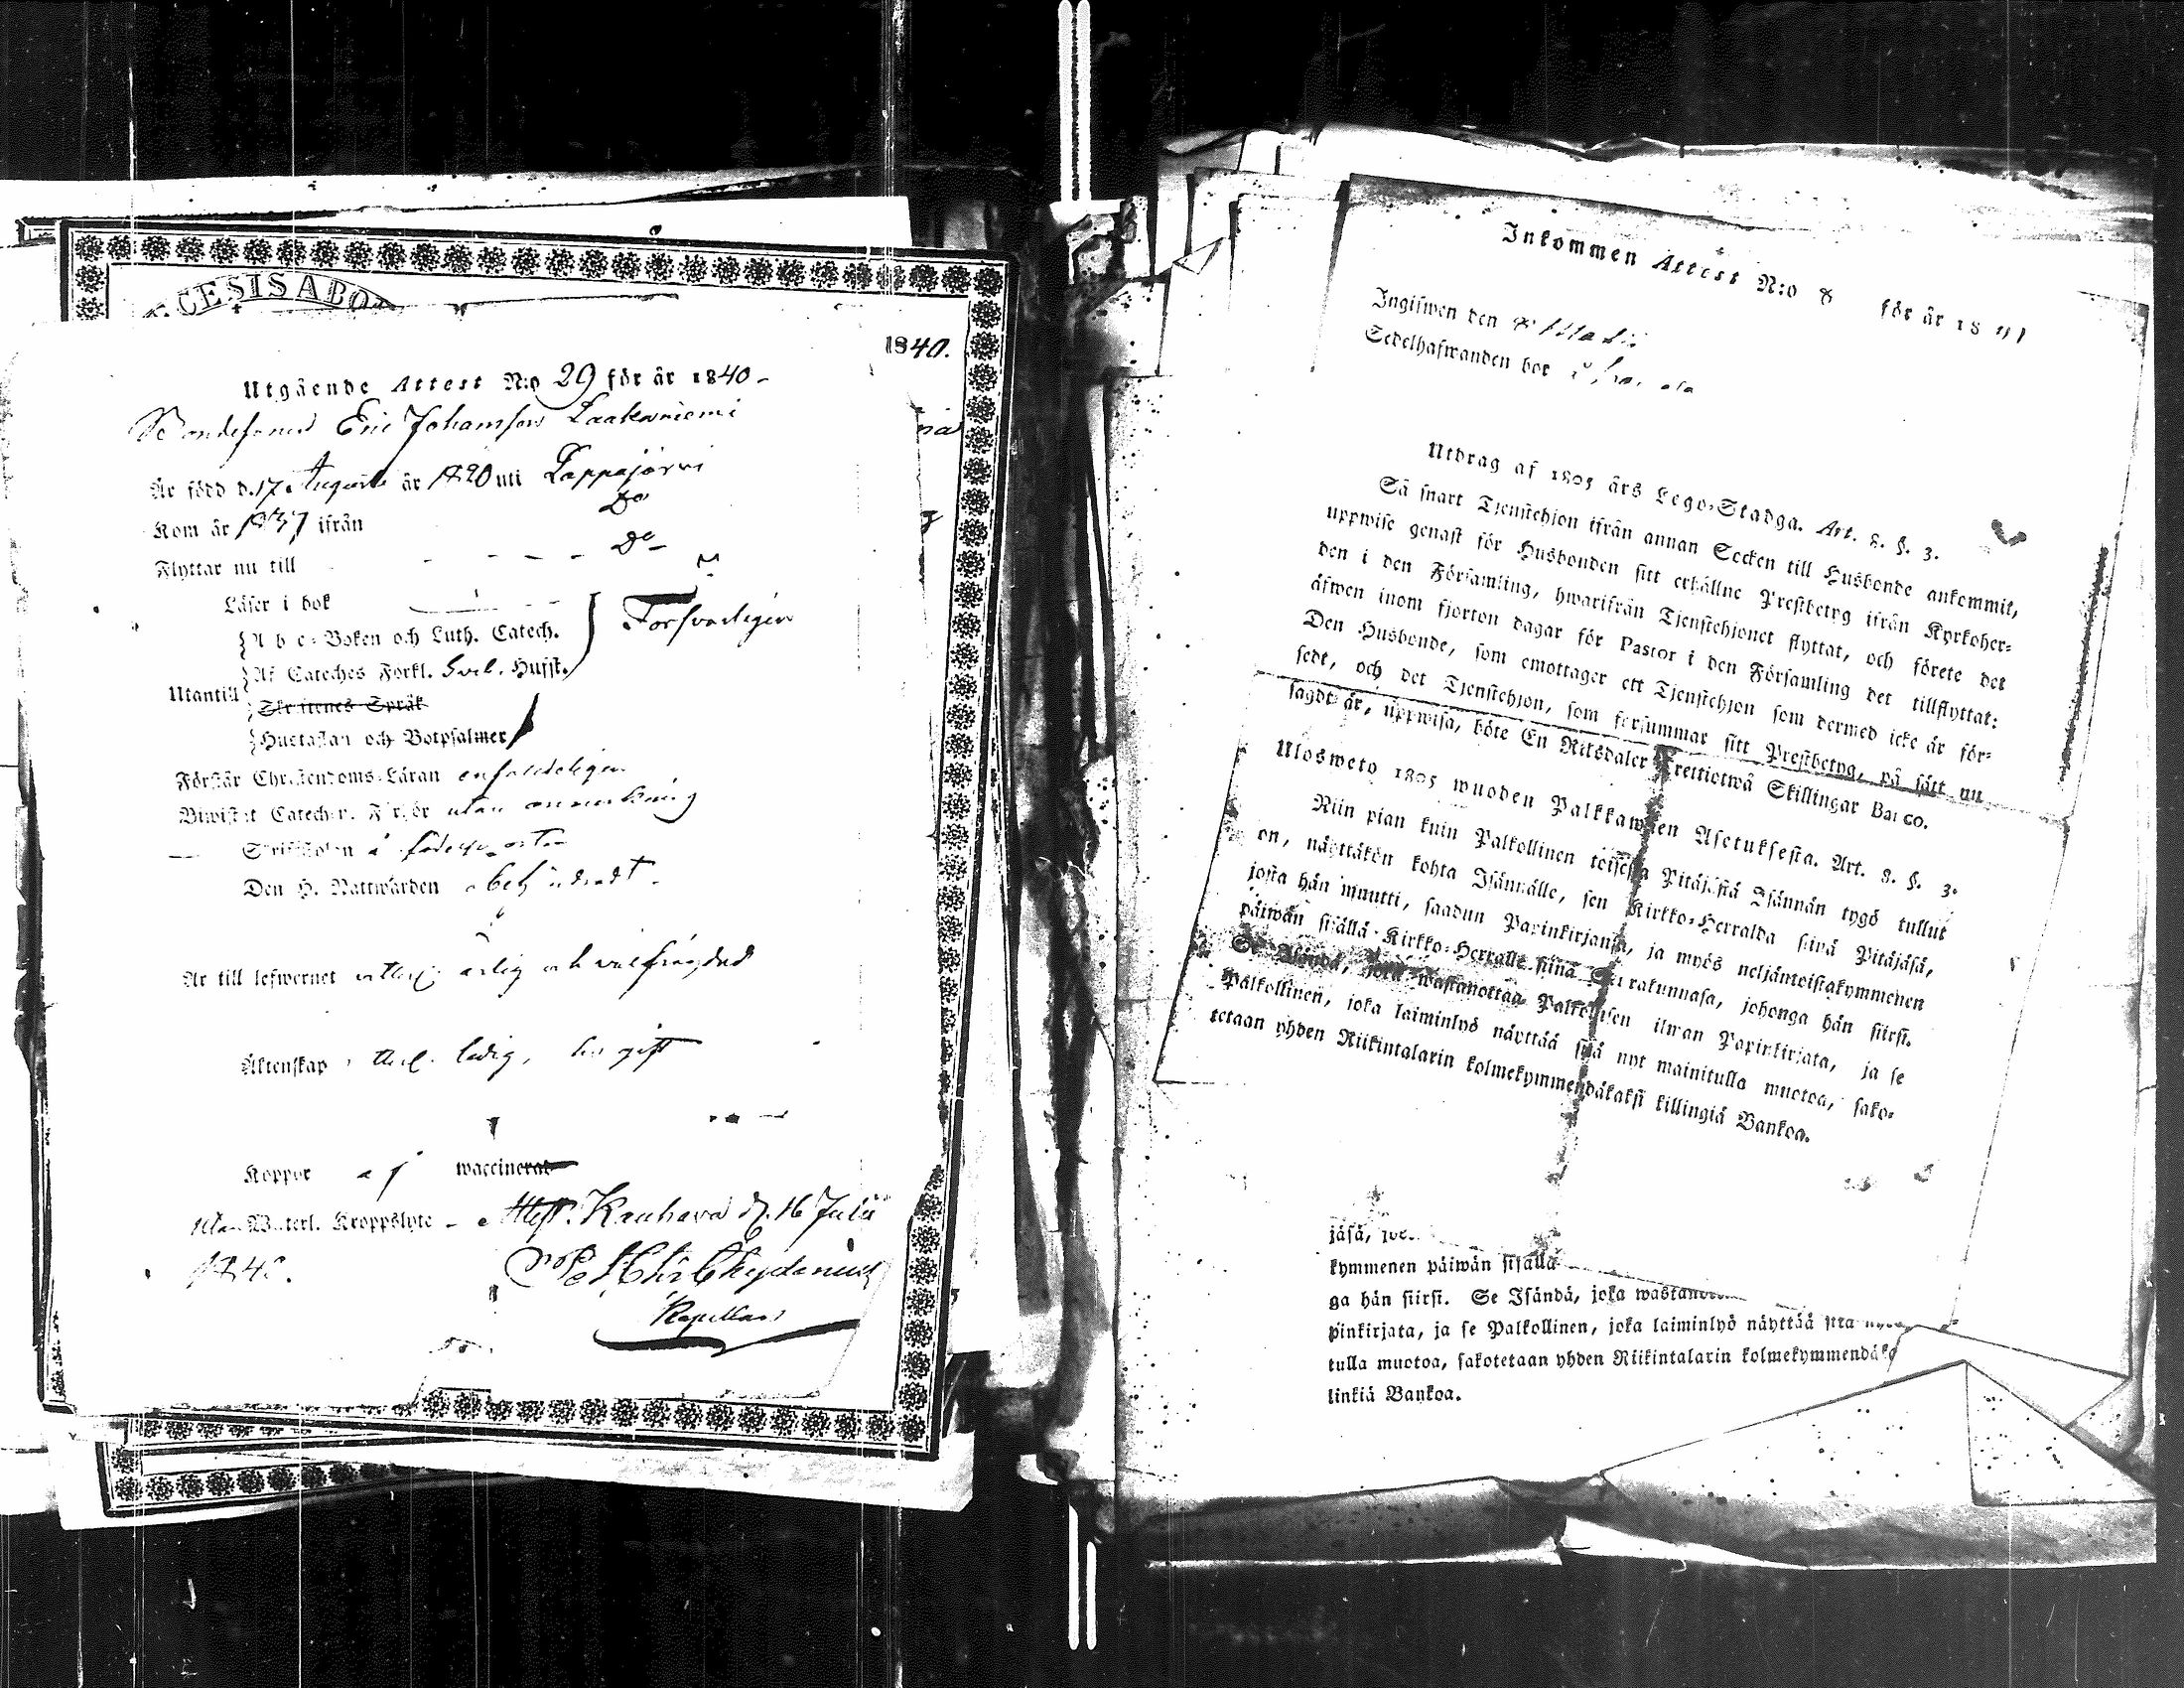 CESIS ABO
1840.
Utgående Attest N:o 29 för år 1840-
Bondesonen Eric Johansson Laakaniemi
Är född d. 17. Augusti år 1820 uti Lappajärvi
Kom år 1837 ifrån Do
Flyttar nu till - - - - Do-
Läser i bok
Utantill
A b c-Boken och Luth. Catech.
Af Cateches Förkl. Sveb. Husst.
Försvarligen
Skriftenes Språk
Hustaflan och Botpsalmer
Förstår Christendoms-Läran enfaldeligen
Biwistat Catech. Förhör utan anmärkning
Skriftskolan å
Den H. Nattwarden
Är till lefwernet ärlig och välfrägdad
Äktenskap ledig,
Koppor ej waccinerat
utan Waterl. Kroppslyte - Attest. Kauhava d. 16 Julii
1840.
Kapellan
Inkommen Attest N:o 8 för år 1841
Ingifwen den
Sedelhafwanden bor
Utdrag af 1805 års Lego-Stadga. Art. 8. §. 3.
Så snart Tjenstehjon ifrån annan Socken till Husbonde ankommit,
uppwise genast för Husbonden sitt erhållne Prestbetyg ifrån Kyrkoher-
den i den Församling, hwarifrån Tjenstehjonet flyttat, och förete det
äfwen inom fjorton dagar för Pastor i den Församling det tillflyttat:
Den Husbonde, som emottager ett Tjenstehjon som dermed icke är för-
sedt, och det Tjenstehjon, som försummar sitt Prestbetyg, på sätt nu
sagdt är, uppwisa, böte En Riksdaler Trettiotwå Skillingar Banco.
Ulosweto 1805 wuoden Palkkawäen Asetuksesta. Art. 8. §. 3.
Niin pian kuin Palkollinen toisesta Pitäjästä Isännän tygö tullut
on, näyttäkön kohta Isännälle, sen Kirkko-Herralda siinä Pitäjäsä,
josta hän muutti, saadun Papinkirjansa, ja myös neljäntoistakymmenen
päiwän sisällä Kirkko-Herralle siinä Seurakunnasa, johonga hän siirsi.
Se Isändä, joka wastanottaa Palkollisen ilman Papinkirjata, ja se
Palkollinen, joka laiminlyö näyttää sitä nyt mainitulla muotoa, sako-
tetaan yhden Riikintalarin kolmekymmendäkaksi killingiä Bankoa.
jäsä,
kymmenen päiwän sisällä
ga hän siirsi. Se Isändä, joka
pinkirjata, ja se Palkollinen, joka laiminlyö näyttää sitä
tulla muotoa, sakotetaan yhden Riikintalarin kolmekymmendäka
linkiä Bankoa.